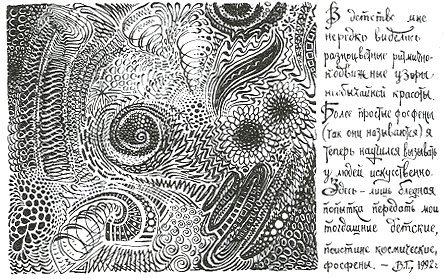 В детстве мне
нередко виделись
разноцветные ритмично-
подвижные узоры
необычайной красоты.
Более простые фосфены
(так они называются) я
теперь научился вызывать
у людей искусственно.
Здесь – лишь бледная
попытка передать мои
тогдашние детские,
поистине космические,
фосфены. – В.Г., 1992 г.